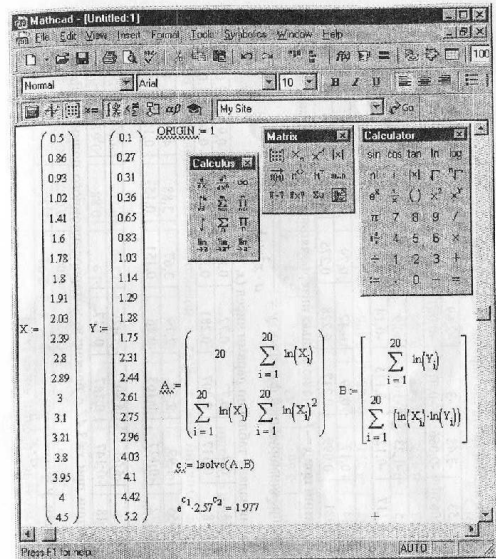 Mathcad - [Untitled:1]
File Edit View Insert Format Tools Symbolics Window Help
100
Normal Arial 10 B I U
My Site Go
ORIGIN := 1
Matrix
Calculus
Calculator
sin cos tan ln log
n! i |x| √ ⁿ√
eˣ 1/x ( ) x² xʸ
π 7 8 9 /
4 5 6 ×
÷ 1 2 3 +
:= . 0 − =
X :=
0.5
0.86
0.93
1.02
1.41
1.6
1.78
1.8
1.91
2.03
2.39
2.8
2.89
3
3.1
3.21
3.8
3.95
4
4.5
Y :=
0.1
0.27
0.31
0.36
0.65
0.83
1.03
1.14
1.29
1.28
1.75
2.31
2.44
2.61
2.75
2.96
4.03
4.1
4.42
5.2
A :=
20 20 ∑ i = 1 ln(Xᵢ)
20 ∑ i = 1 ln(Xᵢ) 20 ∑ i = 1 ln(Xᵢ)²
B :=
20 ∑ i = 1 ln(Yᵢ)
20 ∑ i = 1 (ln(Xᵢ)·ln(Yᵢ))
c := lsolve(A,B)
e^c₁·2.57^c₂ = 1.977
Press F1 for help.
AUTO